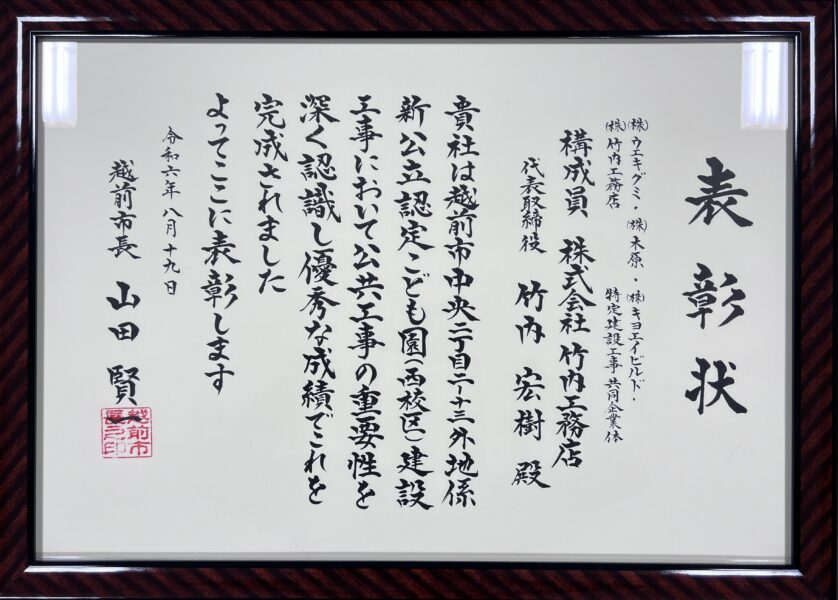 表彰状
㈱ウエキグミ・㈱木原・㈱キヨエイビルド・
㈱竹内工務店 特定建設工事共同企業体
構成員 株式会社 竹内工務店
代表取締役 竹内 宏樹 殿
貴社は越前市中央二丁目二ー十三外地係
新公立認定こども園(西校区)建設
工事において公共工事の重要性を
深く認識し優秀な成績でこれを
完成されました
よってここに表彰します
令和六年八月十九日
越前市長 山田 賢一
越前市長之印